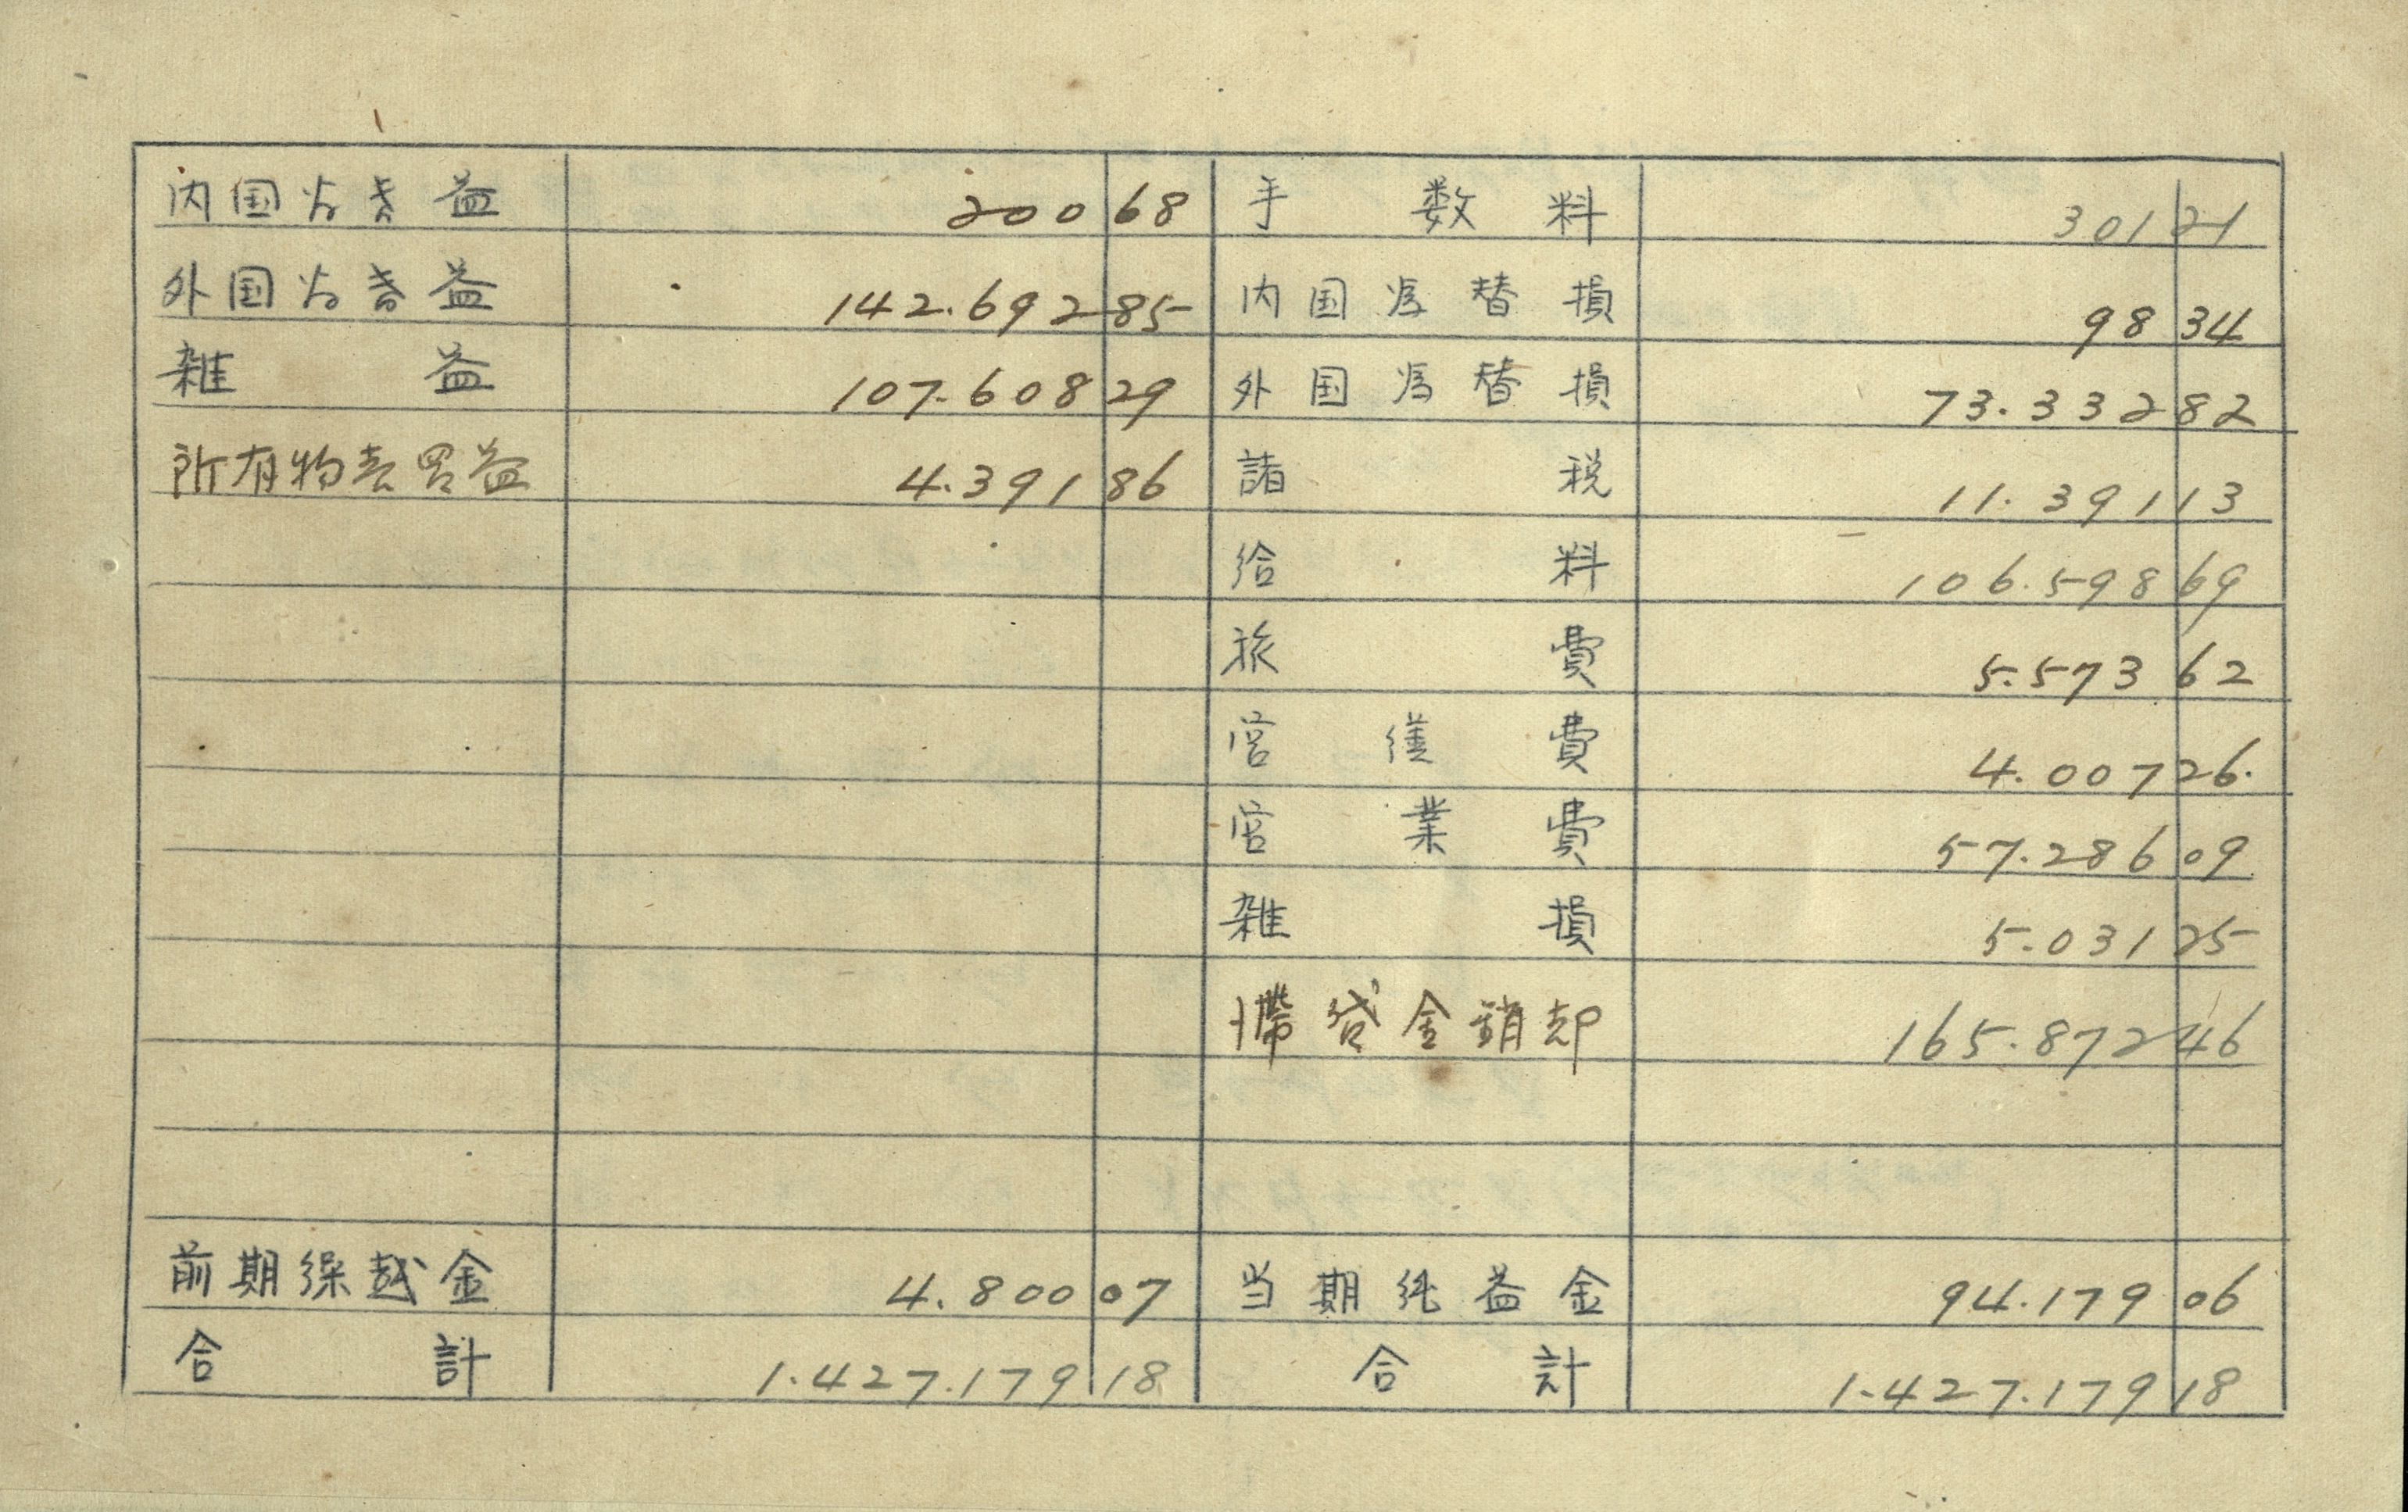 内国为替益 200 68 手数料 301 21
外国为替益 142.692 85 内国為替損 98 34
雑益 107.608 29 外国為替損 73.332 82
所有物売買益 4.391 86 諸税 11.391 13
給料 106.598 69
旅費 5.573 62
営繕費 4.007 26.
営業費 57.286 09
雑損 5.031 25
滞貸金銷却 165.872 46
前期繰越金 4.800 07 当期純益金 94.179 06
合計 1.427.179 18 合計 1.427.179 18